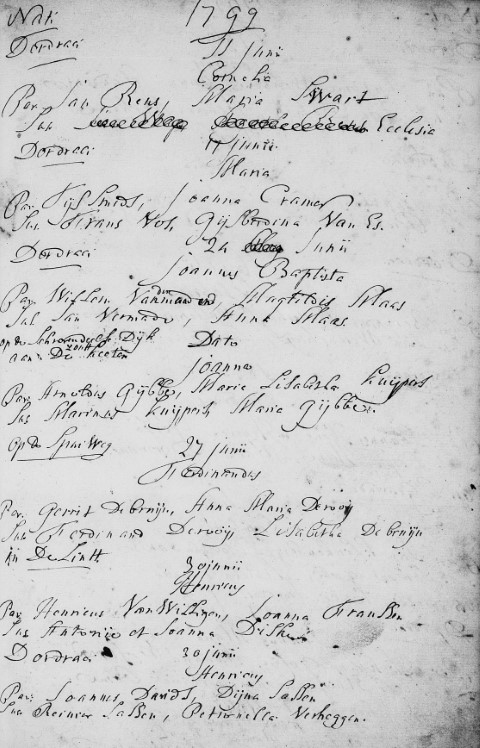 Nati 1799
Dordraci 15 Junii
Cornelia
Par. Jan Rens, Maria Swart
Sus. Ecclesia
Dordraci 17 Junii
Maria
Par. Tijs Smids, Joanna Cramer
Sus. Frans Vos, Gijsberdina Van Es.
Dordraci 24 Junii
Joannes Baptista
Par. Willem Vandermaaden, Magtildis Maas
Sus. Jan Vermade, Anna Maas
op de Dijk Dato
aan De Keeten
Joanna
Par. Arnoldus Gijbbe, Marie Lisabitha Kuijpers
Sus. Marinus Kuijpers Marie Gijbbe
Op de Spui Weg 27 Junii
Ferdinandus
Par. Gerrit De bruijn, Anna Maria Derooij
Sus. Ferdinand Derooij, Lisabitha De bruijn
in De Lintt 30 junii
Henricus
Par. Henricus Van Willigen, Joanna Franssen
Sus. Antonije et Joanna
Dordraci 30 junii
Henricus
Par. Joannes Davids, Dijna Lassen
Sus. Reinier Lassen, Petrornella Verheggen.